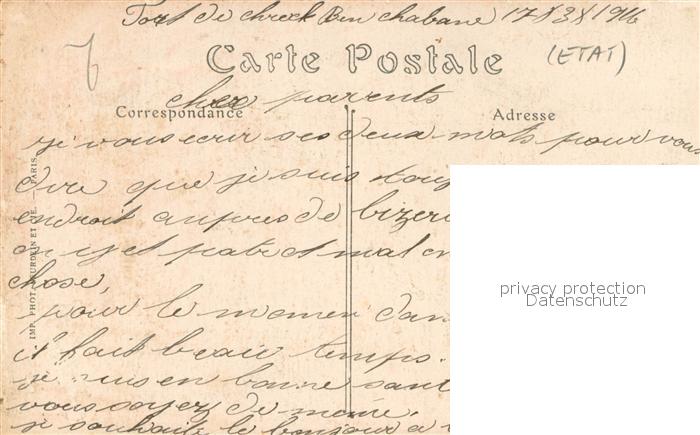 Fort de cheick Ben chabane 17 X 3 X 1916
Carte Postale
(ETAT)
cher parents
Correspondance
Adresse
je vous ecrir ses deux mots pour vous
dire que je suis touj
endroit aupres de bizer
on y et pat et mal
chose,
pour le momen dan
it fait beau temps.
je suis en bonne sant
vous soyez de meme.
je souhaite le bonjour a
IMP. PHOT. ET CIE. — PARIS
privacy protection
Datenschutz